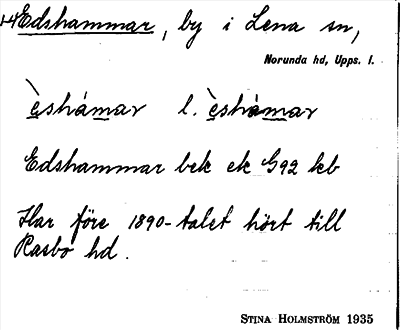 Edshammar, by i Lena sn,
Norunda hd, Upps. l.
èshámar l. èshamar
Edshammar bek ek G92 kb
Har före 1890-talet hört till
Rasbo hd.
STINA HOLMSTRÖM 1935